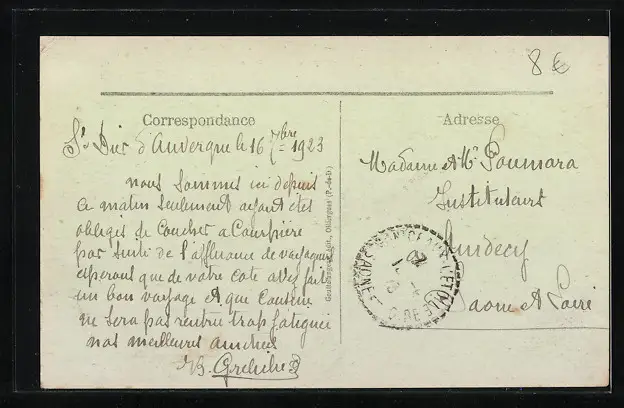 8 €
Correspondance
Adresse
St Dier d'Auvergne le 16 7bre 1923
nous sommes ici depuis
ce matin seulement ayant étés
obligés de coucher a Courpière
par suite de l'affluence de voyageurs
esperont que de votre coté avez fait
un bon voyage et que Cousine
ne sera pas rentrée trop fatiguée
nos meilleures amitiés
Madame et Mr Poumara
Instituteurs
Saone et Loire
édit., Olliergues (P.-de-D.)
SAONE-ET-LOIRE